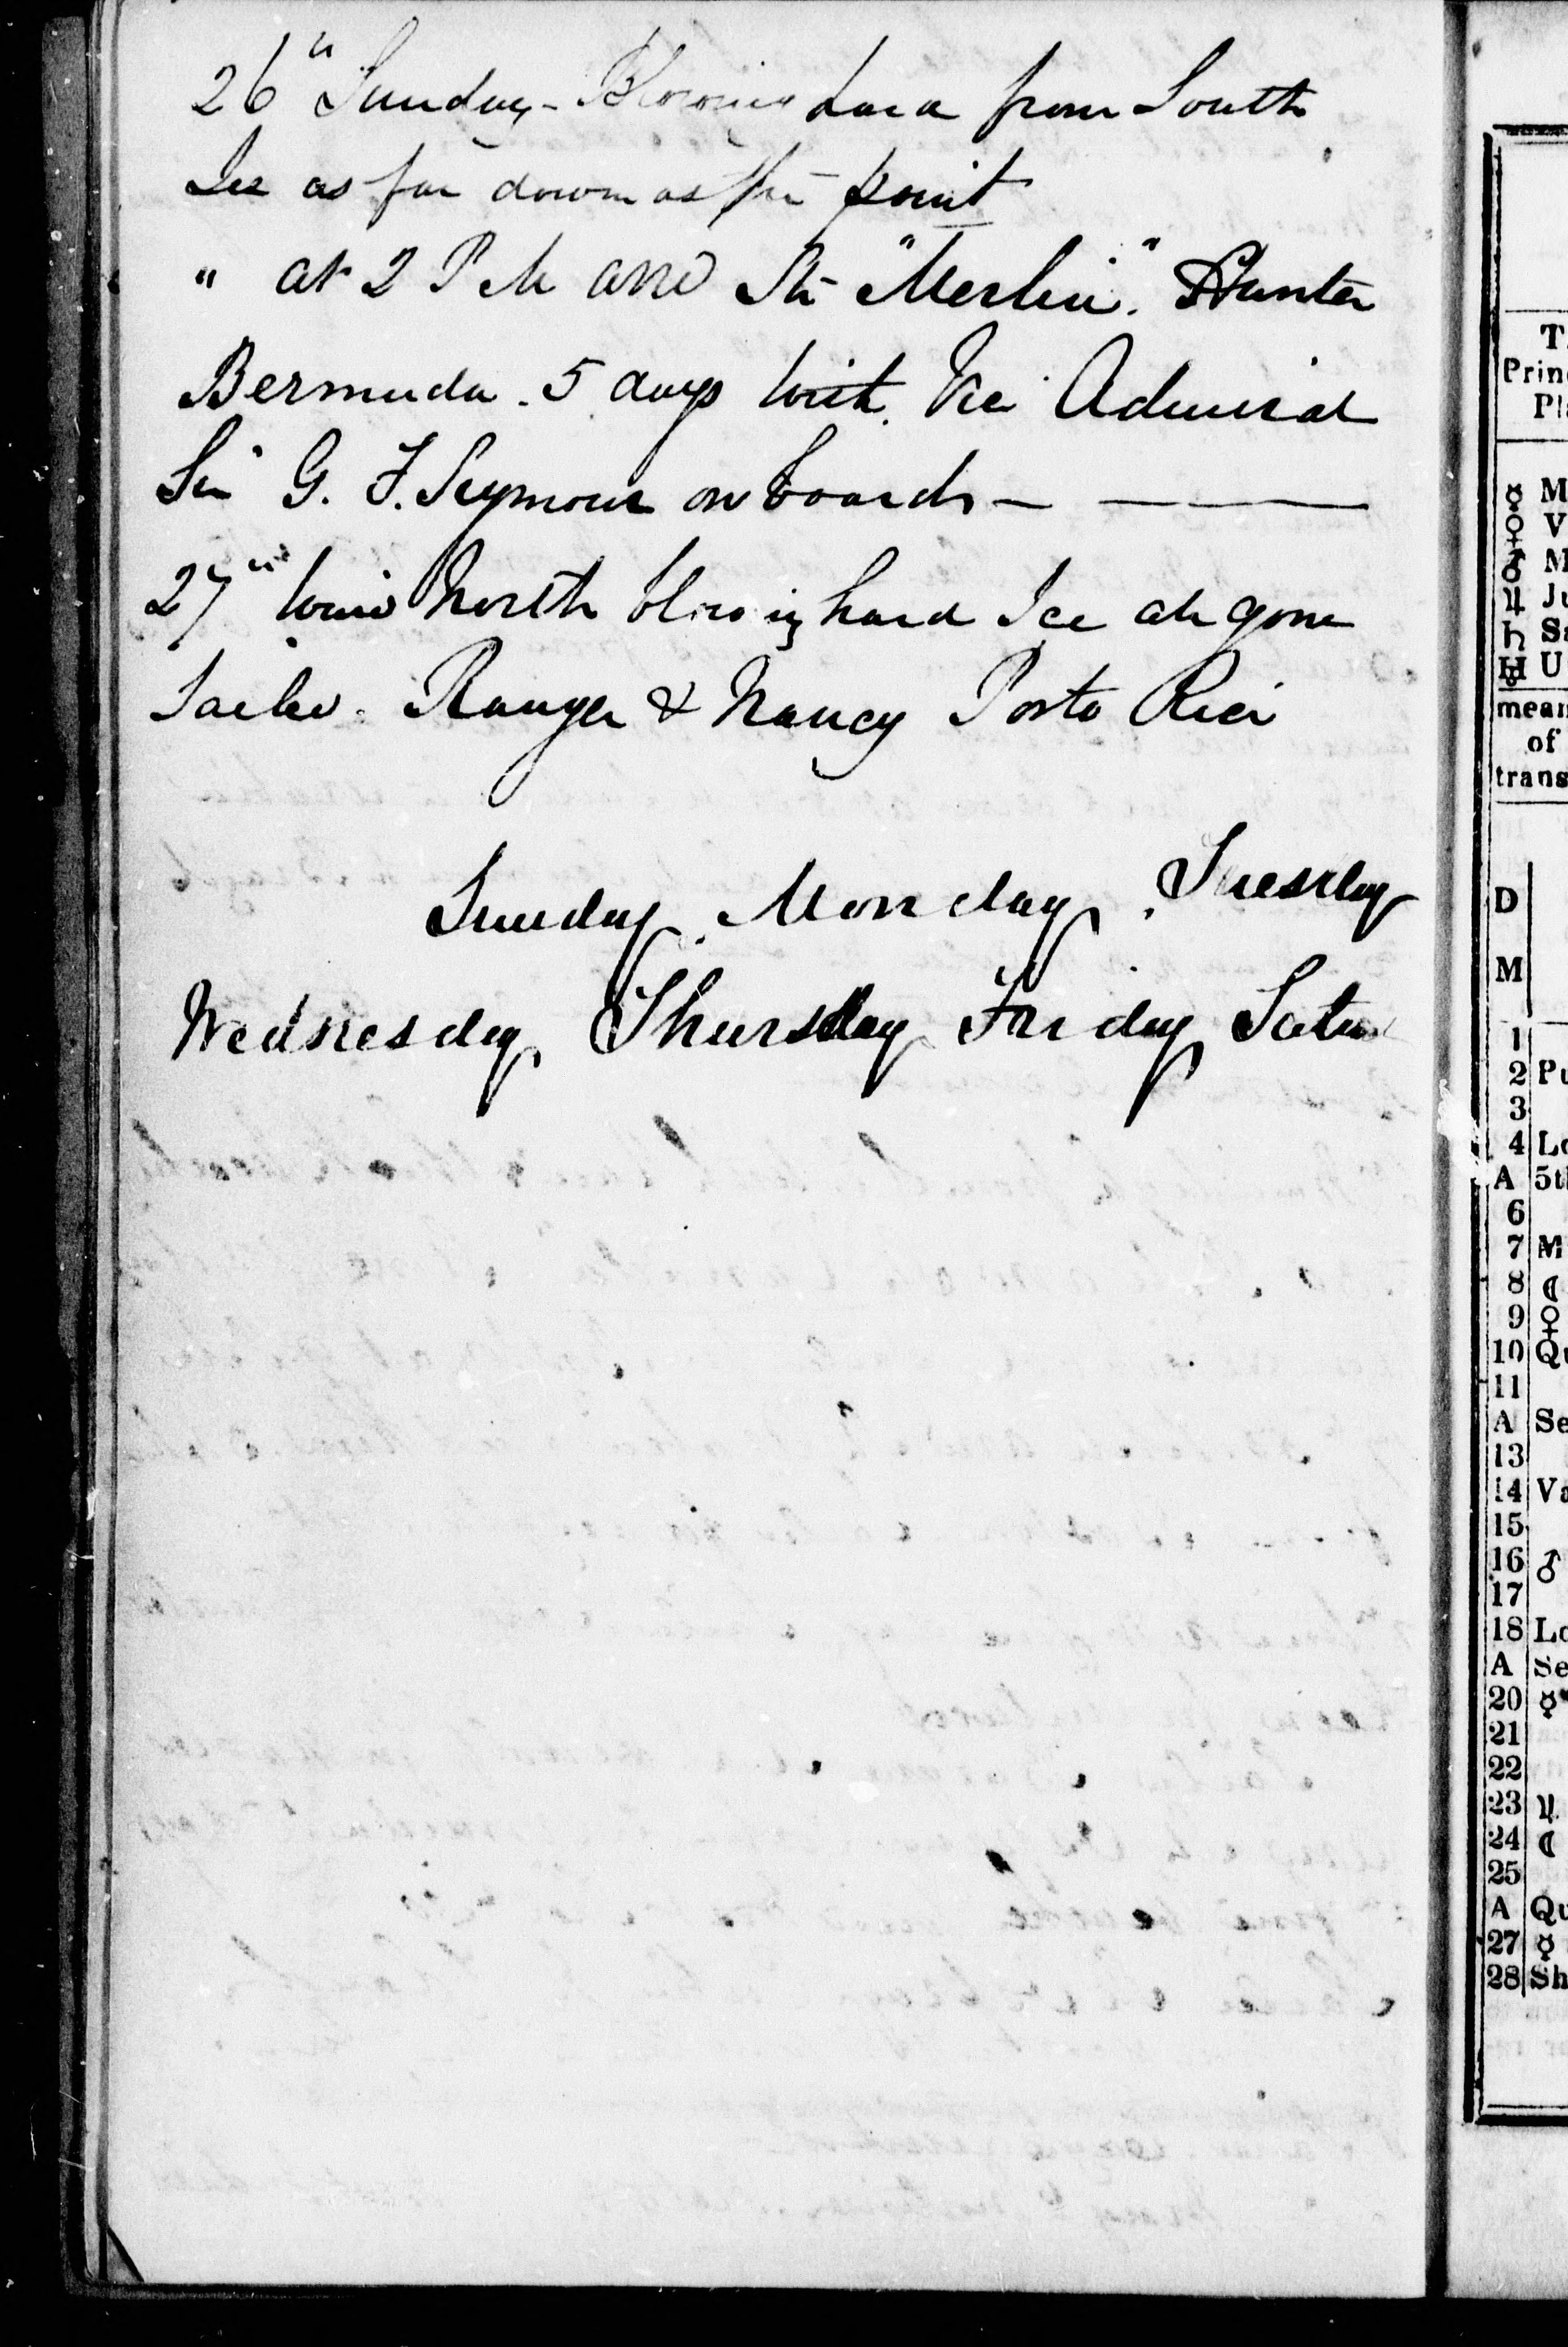 26" Sunday - Blowing hard from South
Ice as far down as the point
" at 2 PM arrd Str "Merlin". Hunter
Bermuda. 5 days with Vice Admiral
Sir G. F. Seymour on board -
27" wind North blowing hard Ice all gone
Sailed. Ranger & Nancy Porto Rico
Sunday. Monday. Tuesday
Wednesday Thursday Friday Satu
T
Prin
Pl
☿ M
♀ V
♂ M
♃ Ju
♄ Sa
♅ U
mean
of
trans
D
M
1
2 Pu
3
4 Lo
A 5t
6
7 M
8 ☾
9 ♀
10 Qu
11
A Se
13
14 Va
15
16 ♂
17
18 Lo
A Se
20 ☿
21
22
23 ♃
24 ☾
25
A Qu
27 ☿
28 Sh